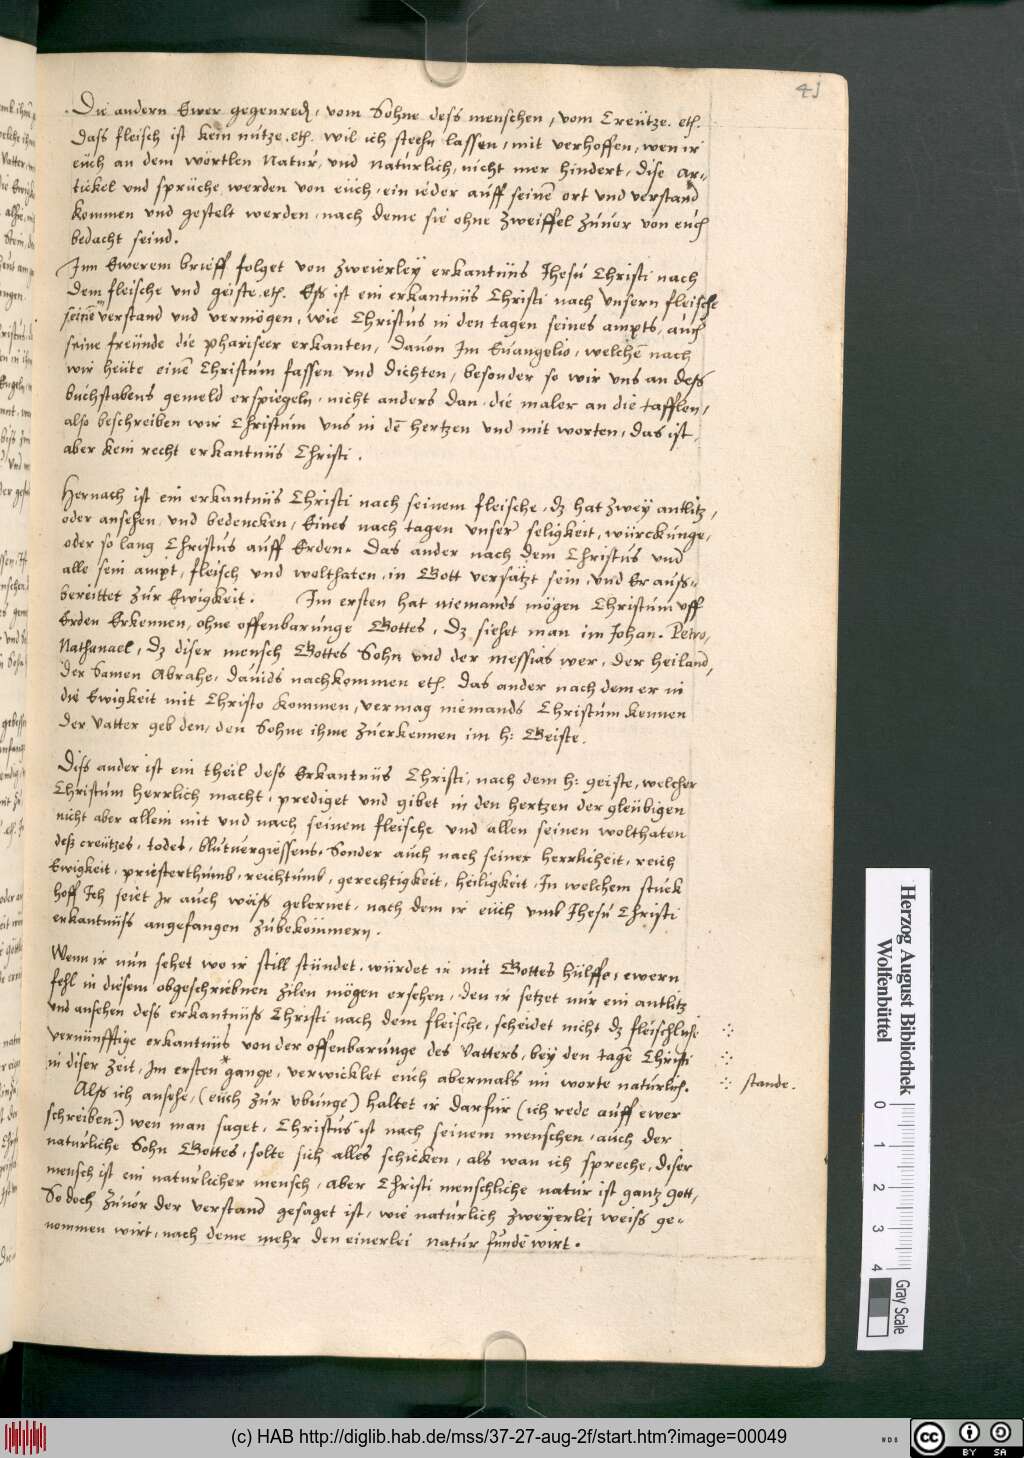 41
Die andern Ewer gegenred, vom Sohne dess menschen, vom Creütze. etc.
dass fleisch ist kein nütze. etc. wil ich steehn lassen, mit verhoffen, wen ir
eüch an dem wörtlen Natur, und naturlich, nicht mer hindert, dise Ar-
tickel und sprüche, werden von eüch, ein ieder auff seinē ort und verstand
kommen und gestelt werden, nach deme sie ohne zweiffel zuuor von euch
bedacht seind.
Inn Ewerem brieff folget von zweierley erkantnüs Jhesu Christi nach
dem fleische und geiste. etc. Eß ist ein erkantnüs Christi nach unsern fleische
seinē verstand und vermögen, wie Christus in den tagen seines ampts, auch
seine freünde die phariseer erkanten, dauon Im Euangelio, welchē nach
wir heüte einē Christum fassen und dichten, besonder so wir uns an dess
buchstabens gemeld erspiegeln, nicht anders dan die maler an die tafflen,
also beschreiben wir Christum uns in dē hertzen und mit worten, das ist
aber kein recht erkantnüs Christi.
Hernach ist ein erkantnüs Christi nach seinem fleische, dz hat zwey antlitz,
oder ansehen und bedencken, Eines nach tagen unser seligkeit, würckunge,
oder so lang Christus auff Erden. Das ander nach dem Christus und
alle sein ampt, fleisch und wolthaten, in Gott versätzt sein, und Er auß-
bereittet zur Ewigkeit. Im ersten hat niemands mögen Christum uff
Erden Erkennen, ohne offenbarunge Gottes, dz siehet man im Johan. Petro,
Nathanael, dz diser mensch Gottes Sohn und der messias wer, der heiland,
der Samen Abrahe, dauids nachkommen etc. das ander nach dem er in
die Ewigkeit mit Christo kommen, vermag niemands Christum kennen
der Vatter geb den, den Sohne ihme zuerkennen im h: Geiste.
Diss ander ist ein theil dess Erkantnüs Christi, nach dem h: geiste, welcher
Christum herrlich macht, prediget und gibet in den hertzen der gleübigen
nicht aber allein mit und nach seinem fleische und allen seinen wolthaten
deß creützes, todes, blutuergiessens. Sonder auch nach seiner herrlicheit, reich
Ewigkeit, priesterthumb, reichtumb, gerechtigkeit, heiligkeit, In welchem stuck
hoff Ich seiet Jr auch weiss gelernet, nach dem ir eüch umb Jhesu Christi
erkantnüss angefangen zubekümmern.
Wenn ir nun sehet wo ir still stündet, würdet ir mit Gottes hülffe, ewern
fehl in diesem obgeschriebnen zilen mögen ersehen, den ir setzet nur ein antlitz
und ansehen dess erkantnüß Christi nach dem fleische, scheidet nicht dz fleischlich
vernünfftige erkantnüs von der offenbarunge des Vatters, bey den tagē Christi
in diser zeit, Im ersten gange, verwicklet euch abermals im worte naturlich. stande.
Alß ich ansehe, (euch zur ubunge) haltet ir darfür (ich rede auff ewer
schreiben:) wen man saget, Christus ist nach seinem menschen, auch der
naturliche Sohn Gottes, solte sich alles schicken, als wan ich spreche, diser
mensch ist ein naturlicher mensch, aber Christi menschliche natur ist gantz gott,
So doch zuuor der verstand gesaget ist, wie naturlich zweyerlei weiß ge-
nommen wirt, nach deme mehr den einerlei natur fundē wirt.
Herzog August Bibliothek
Wolfenbüttel
0 1 2 3 4
Gray Scale
(c) HAB http://diglib.hab.de/mss/37-27-aug-2f/start.htm?image=00049
WDB
cc BY SA